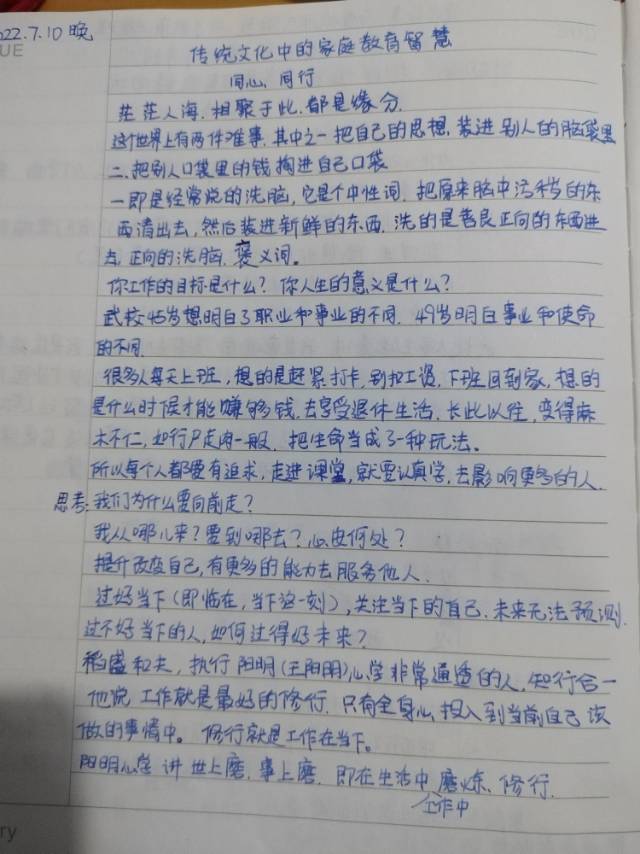 022.7.10 晚
UE
传统文化中的家庭教育智慧
同心、同行
茫茫人海.相聚于此.都是缘分.
这个世界上有两件难事.其中之一把自己的思想,装进别人的脑袋里
二.把别人口袋里的钱掏进自己口袋
一即是经常说的洗脑,它是个中性词.把原来脑中污秽的东
西清出去,然后装进新鲜的东西.洗的是善良正向的东西进
去,正向的洗脑,褒义词。
你工作的目标是什么?你人生的意义是什么?
武校45岁想明白了职业和事业的不同.49岁明白事业和使命
的不同.
很多人每天上班,想的是赶紧打卡,别扣工资.下班回到家,想的
是什么时候才能赚够钱,去享受退休生活.长此以往,变得麻
木不仁,如行尸走肉一般.把生命当成了一种玩法。
所以每个人都要有追求,走进课堂,就要认真学,去影响更多的人.
思考:我们为什么要向前走?
我从哪儿来?要到哪去?心安何处?
提升改变自己,有更多的能力去服务他人.
过好当下(即临在,当下这一刻),关注当下的自己.未来无法预测.
过不好当下的人,如何过得好未来?
稻盛和夫,执行阳明(王阳明)心学非常通透的人,知行合一
他说工作就是最好的修行.只有全身心投入到当前自己该
做的事情中。修行就是工作在当下。
阳明心学讲世上磨,事上磨.即在生活中磨炼、修行.
工作中
ry